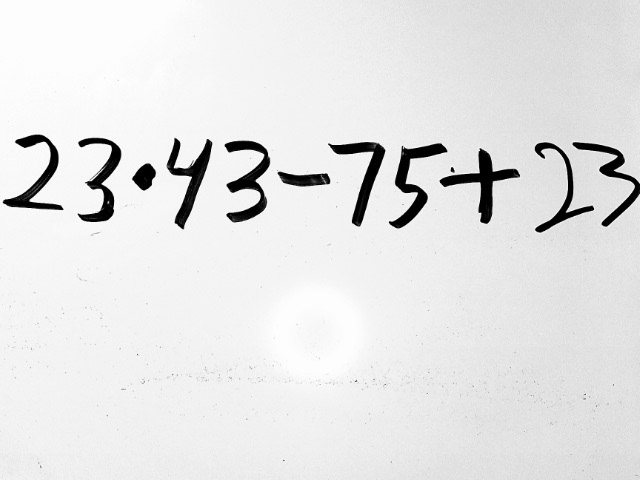 23·43-75+23